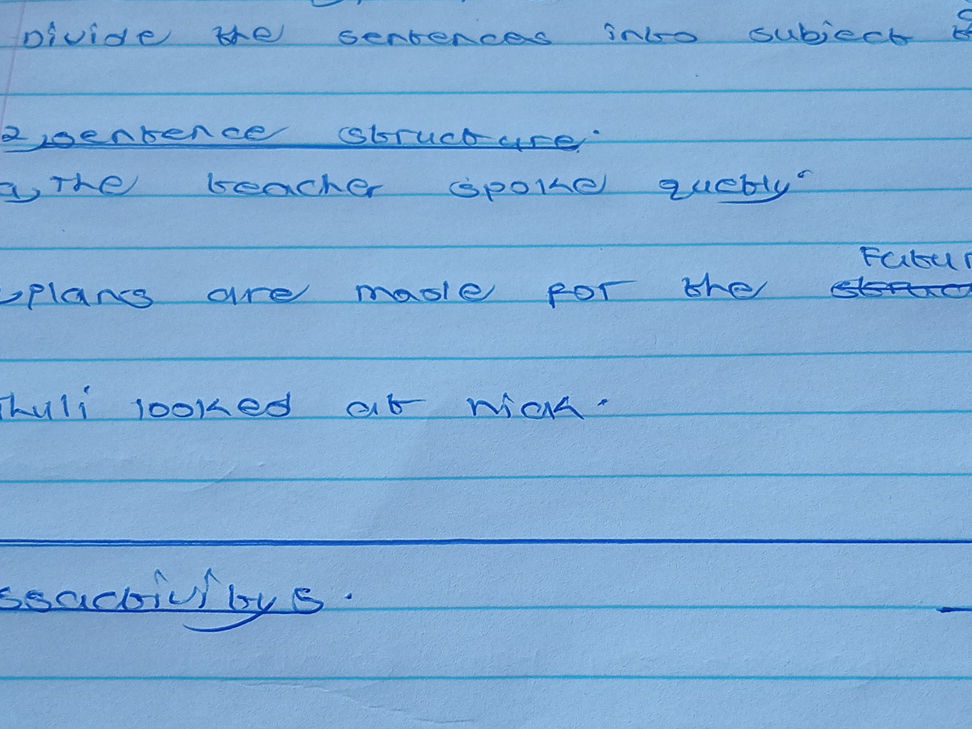 Divide the sentences into subject
2, sentence structure.
a, The teacher spoke quetly.
Futur
plans are made for the
Thuli looked at nick.
ssactivity 5.